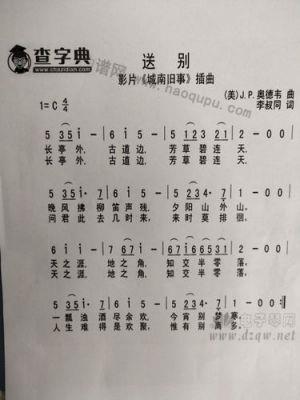 查字典
www.chazidian.com
送 别
影片《城南旧事》插曲
(美)J.P.奥德韦 曲
李叔同 词
1=C 4/4
5 3 5 i - | 6 i 5 - | 5 1 2 3 2 1 | 2 - - 0 |
长亭外, 古道边, 芳草碧连天。
长亭外, 古道边, 芳草碧连天。
5 3 5 i· 7 | 6 i 5 - | 5 2 3 4· 7 | 1 - - 0 |
晚风拂柳笛声残, 夕阳山外山。
问君此去几时来, 来时莫徘徊。
6 i i - | 7 6 7 i - | 6 7 i 6 6 5 3 1 | 2 - - 0 |
天之涯, 地之角, 知交半零落。
天之涯, 地之角, 知交半零落。
5 3 5 i· 7 | 6 i 5 - | 5 2 3 4· 7 | 1 - - 0 :|
一瓢浊酒尽余欢, 今宵别梦寒。
人生难得是欢聚, 惟有别离多。
www.haoqupu.com
电子琴网
www.dzqw.net